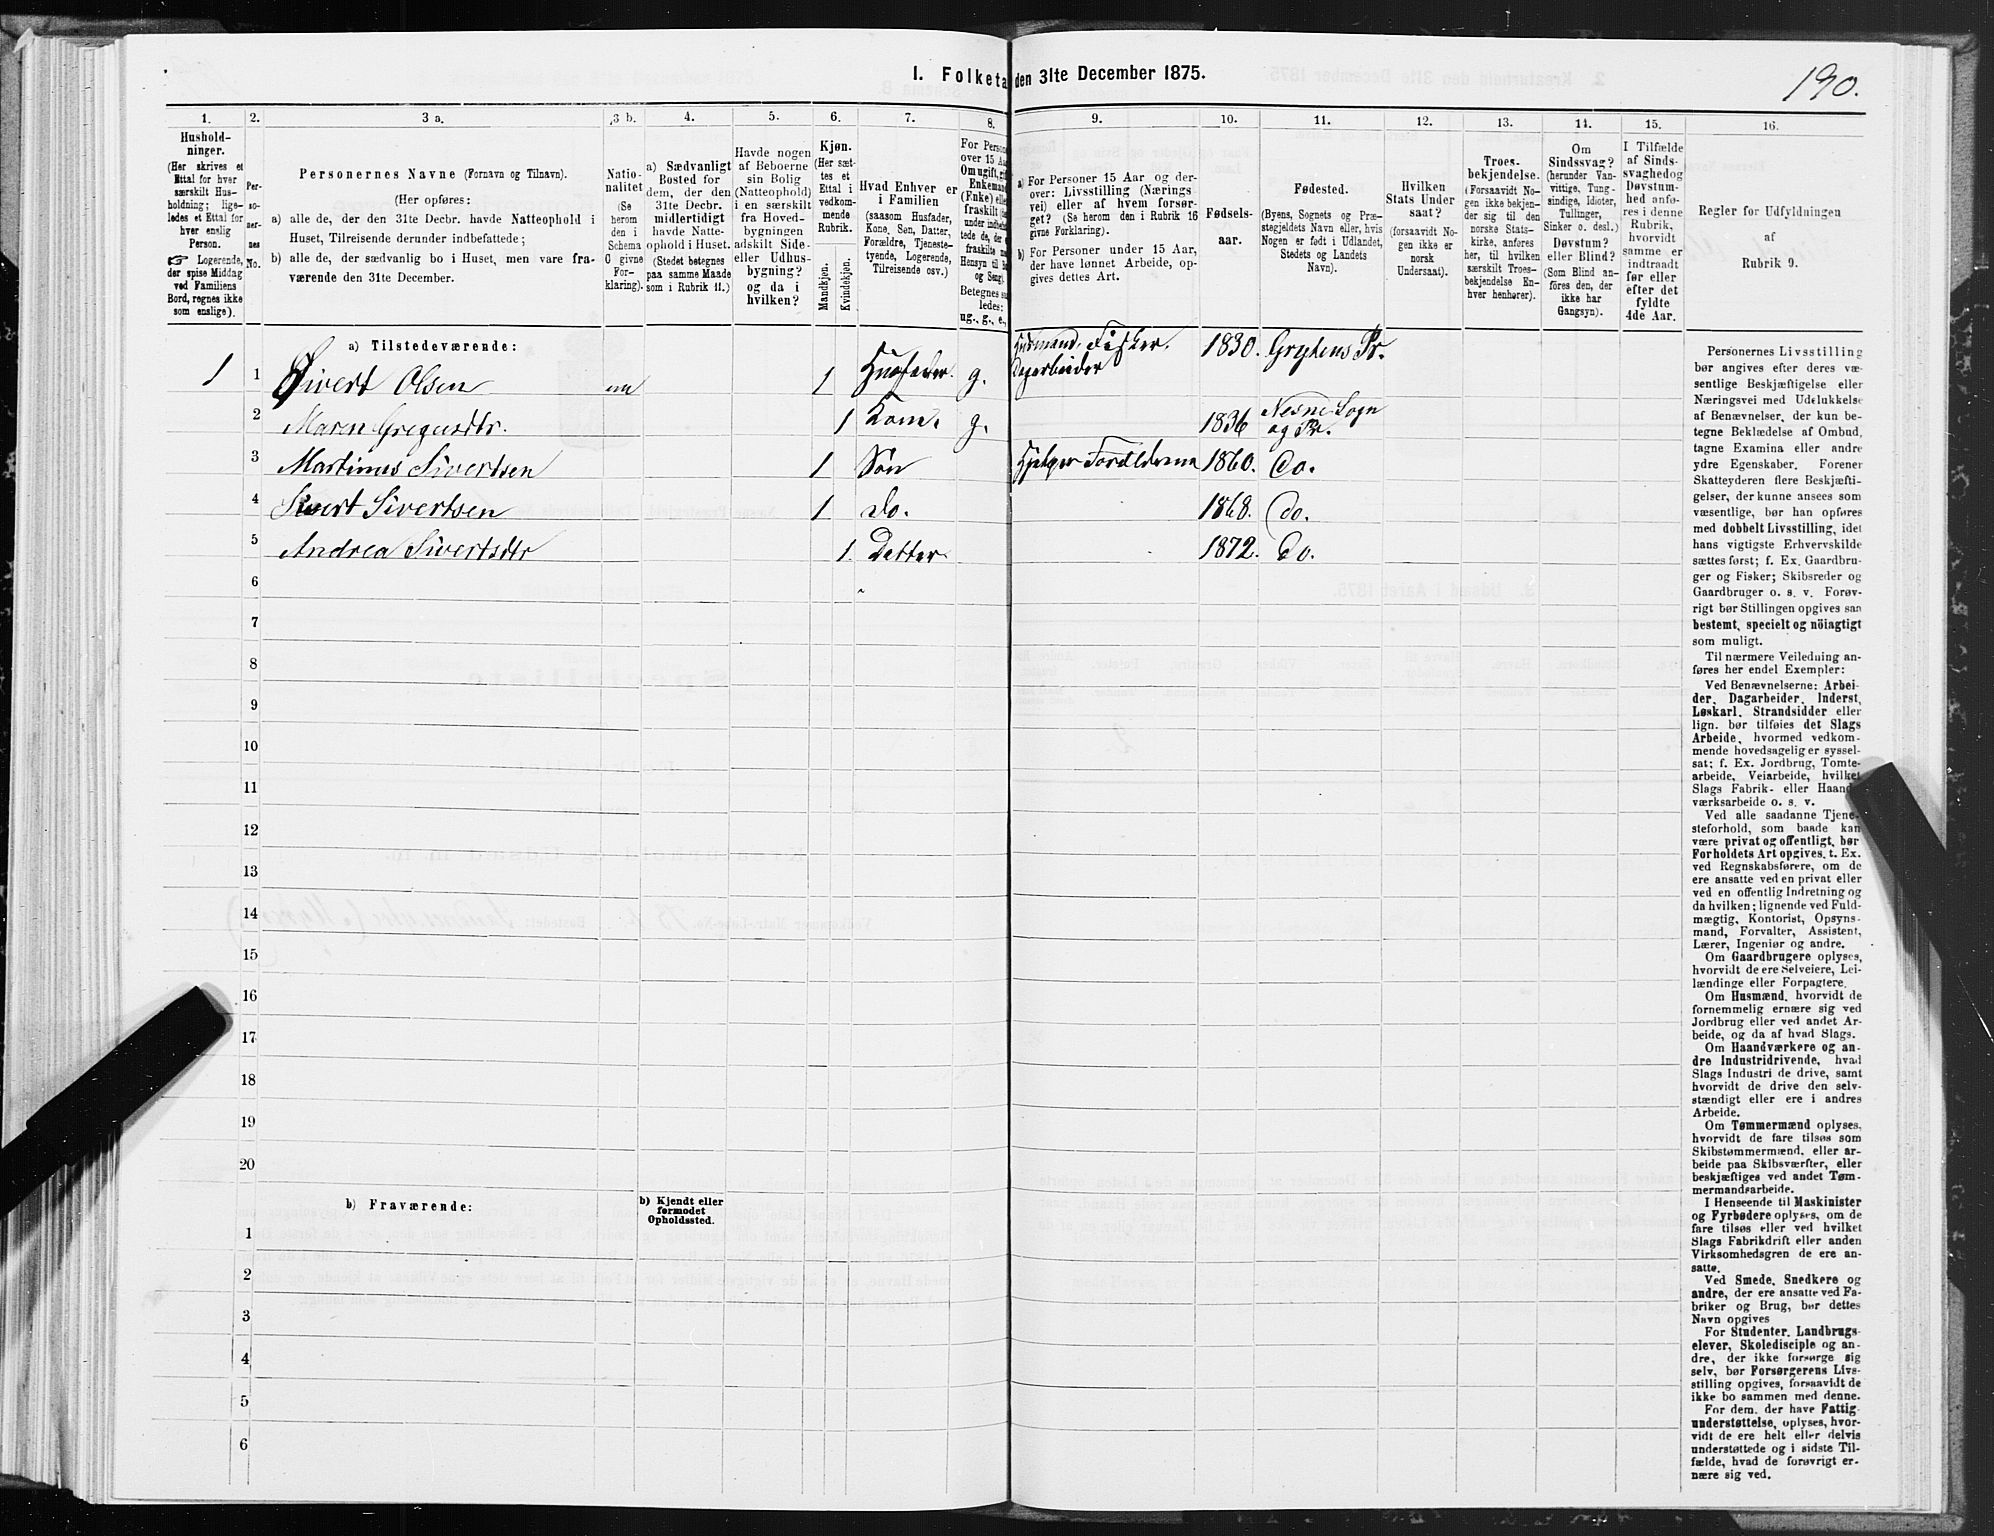 190.
I. Folketal den 31te December 1875.
1. 2. 3 a. 3 b. 4. 5. 6. 7. 8. 9. 10. 11. 12. 13. 14. 15. 16.
Hushold-
ninger.
(Her skrives et
Ettal for hver
særskilt Hus-
holdning; lige-
ledes et Ettal for
hver enslig
Person.
☞ Logerende,
der spise Middag
ved Familiens
Bord, regnes ikke
som enslige).
Per-
so-
ner-
nes
No.
Personernes Navne (Fornavn og Tilnavn).
(Her opføres:
a) alle de, der den 31te Decbr. havde Natteophold i
Huset, Tilreisende derunder indbefattede;
b) alle de, der sædvanlig bo i Huset, men vare fra-
værende den 31te December.
Natio-
nalitet
(Se
herom
den i
Schema
C givne
For-
klaring).
a) Sædvanligt
Bosted for
dem, der den
31te Decbr.
midlertidigt
havde Natte-
ophold i Huset.
(Stedet betegnes
paa samme Maade
som i Rubrik 11.)
Havde nogen
af Beboerne
sin Bolig
(Natteophold)
i en særskilt
fra Hoved-
bygningen
adskilt Side-
eller Udhus-
bygning?
og da i
hvilken?
Kjøn.
(Her sæt-
tes et
Ettal i
vedkom-
mende
Rubrik.
Mandkjøn.
Kvindekjøn.
Hvad Enhver er
i Familien
(saasom Husfader,
Kone, Søn, Datter,
Forældre, Tjeneste-
tyende, Logerende,
Tilreisende osv.)
For Person
over 15 Aa
Om ugift, gif
Enkemand
(Enke) elle
fraskilt
under
tede de, der
fraskilte
Hensyn til B
og Seng).
Betegnes saa
ledes:
ug., g., e.,
a) For Personer 15 Aar og der-
over: Livsstilling (Nærings-
vei) eller af hvem forsør-
get? (Se herom den i Rubrik 16
givne Forklaring).
b) For Personer under 15 Aar,
der have lønnet Arbeide, op-
gives dettes Art.
Fødsels-
aar.
Fødested.
(Byens, Sognets og Præ-
stegjeldets Navn eller, hvis
Nogen er født i Udlandet,
Stedets og Landets
Navn).
Hvilken
Stats Under-
saat?
(forsaavidt No-
gen ikke er
norsk
Undersaat).
Troes-
bekjendelse.
(Forsaavidt No-
gen ikke bekjen-
der sig til den
norske Stats-
kirke, anføres
her, til hvilken
særskilt Troes-
bekjendelse En-
hver henhører).
Om
Sindssvag?
(herunder Van-
vittige, Tung-
sindige, Idioter,
Tullinger,
Sinker o. desl.)
Døvstum?
eller Blind?
(Som Blind an-
føres den, der
ikke har
Gangsyn).
I Tilfælde
af Sinds-
svaghed og
Døvstum-
hed anfø-
res i denne
Rubrik,
hvorvidt
samme er
indtraadt
før eller
efter det
fyldte
4de Aar.
Regler for Udfyldningen
af
Rubrik 9.
a) Tilstedeværende:
Husmand. Fisker.
1 1 Sivert Olsen nn 1 Husfader. g. Dagarbeider 1830. Grytens Pr.
2 Maren Gregusdtr. 1 Kone. g. 1836 Nesne Sogn
og Pr.
3 Martinus Sivertsen 1 Søn Hjelper Forældrene 1860. Do.
4 Sivert Sivertsen 1 do. 1868. do.
5 Andrea Sivertsdtr 1. Datter 1872. Do.
6
7
8
9
10
11
12
13
14
15
16
17
18
19
20
b) Fraværende:
b) Kjendt eller
formodet
Opholdssted.
1
2
3
4
5
6
Personernes Livsstilling
bør angives efter deres væ-
sentlige Beskjæftigelse eller
Næringsvei med Udelukkelse
af Benævnelser, der kun be-
tegne Beklædelse af Ombud,
tagne Examina eller andre
ydre Egenskaber. Forener
Skatteyderen flere Beskjæfti-
gelser, der kunne ansees som
væsentlige, bør han opføres
med dobbelt Livsstilling, idet
hans vigtigste Erhvervskilde
sættes først; f. Ex. Gaardbru-
ger og Fisker; Skibsreder og
Gaardbruger o. s. v. Forøv-
rigt bør Stillingen opgives saa
bestemt, specielt og nöiagtigt
som muligt.
Til nærmere Veiledning an-
føres her endel Exempler:
Ved Benævnelserne: Arbei-
der, Dagarbeider, Inderst,
Løskarl, Strandsidder eller
lign. bør tilføies det Slags
Arbeide, hvormed vedkom-
mende hovedsagelig er syssel-
sat; f. Ex. Jordbrug, Tomte-
arbeide, Veiarbeide, hvilket
Slags Fabrik- eller Haand-
værksarbeide o. s. v.
Ved alle saadanne Tjene-
steforhold, som baade kan
være privat og offentligt, bør
Forholdets Art opgives, t. Ex.
ved Regnskabsførere, om de
ere ansatte ved en privat eller
ved en offentlig Indretning og
da hvilken; lignende ved Fuld-
mægtig, Kontorist, Opsyns-
mand, Forvalter, Assistent,
Lærer, Ingeniør og andre.
Om Gaardbrugere oplyses,
hvorvidt de ere Selveiere, Lei-
lændinge eller Forpagtere.
Om Husmænd, hvorvidt de
fornemmelig ernære sig ved
Jordbrug eller ved andet Ar-
beide, og da af hvad Slags.
Om Haandværkere og an-
dre Industridrivende, hvad
Slags Industri de drive, samt
hvorvidt de drive den selv-
stændigt eller ere i andres
Arbeide.
Om Tømmermænd oplyses,
hvorvidt de fare tilsøs som
Skibstømmermænd, eller ar-
beide paa Skibsværfter, eller
beskjæftiges ved andet Tøm-
mermandsarbeide.
I Henseende til Maskinister
og Fyrbødere oplyses, om de
fare tilsøs eller ved hvilket
Slags Fabrikdrift eller anden
Virksomhedsgren de ere an-
satte.
Ved Smede, Snedkere og
andre, der ere ansatte ved Fa-
briker og Brug, bør dettes
Navn opgives
For Studenter, Landbrugs-
elever, Skoledisciple og an-
dre, der ikke forsørge sig
selv, bør Forsørgerens Livs-
stilling opgives, forsaavidt de
ikke bo sammen med denne.
For dem, der have Fattig-
understøttelse, oplyses, hvor-
vidt de ere helt eller delvis
understøttede og i sidste Til-
fælde, hvad de forøvrigt er-
nære sig ved.